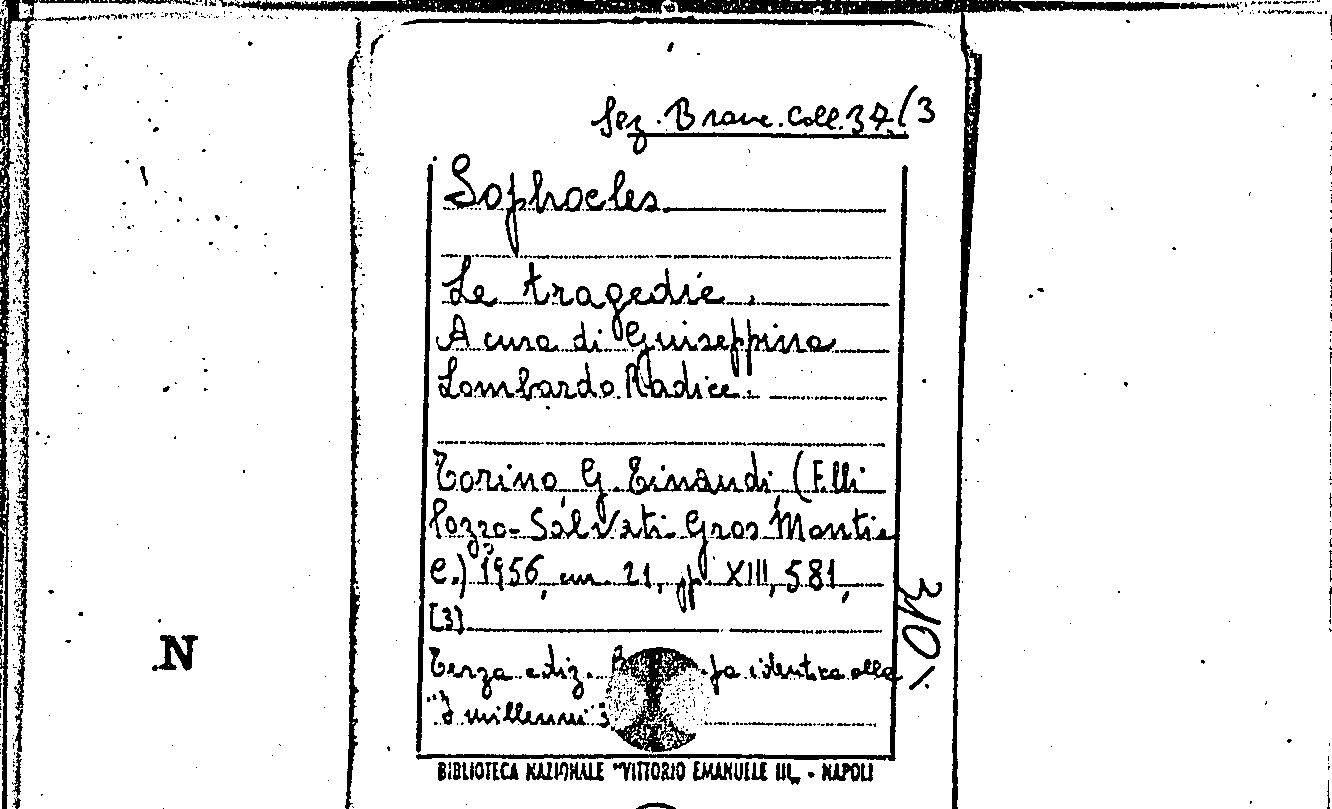 Sez. Branc. Coll. 37.(3
Sophocles.
Le tragedie.
A cura di Guiseppina
Lombardo Radice.
Torino, G. Einaudi, (F.lli
Pozzo-Salvati-Gros Monti e
C.) 1956, cm. 21, pp. XIII, 581,
[3]
Terza ediz. identica alla
"I millenni"
310
N
BIBLIOTECA NAZIONALE "VITTORIO EMANUELE III„ - NAPOLI